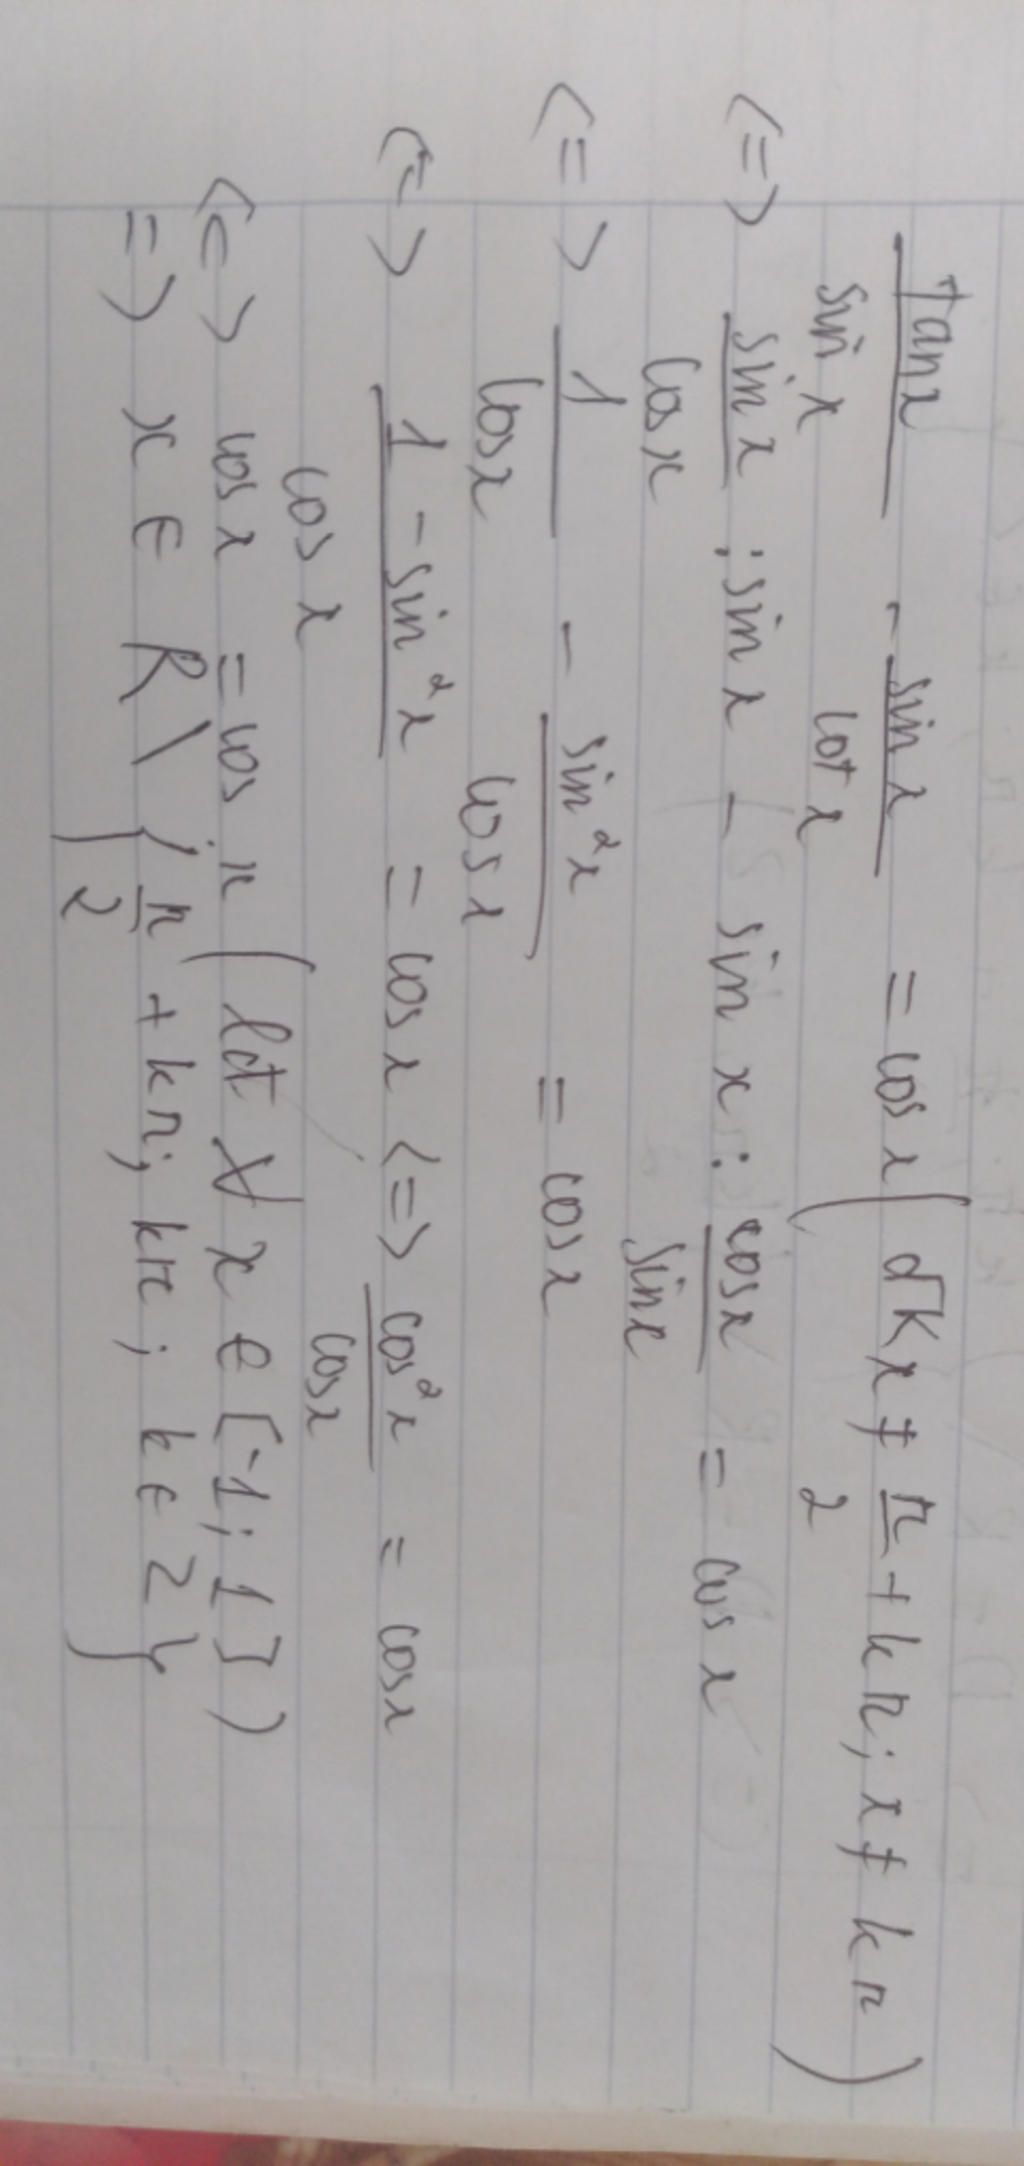 Tanx/sinx - sinx/cotx = cosx (đk x ≠ π/2 + kπ; x ≠ kπ)
<=> sinx/cosx : sinx - sinx : cosx/sinx = cosx
<=> 1/cosx - sin²x/cosx = cosx
<=> 1-sin²x/cosx = cosx <=> cos²x/cosx = cosx
<=> cosx = cosx (lđt ∀ x ∈ [-1; 1])
=> x ∈ R \ { π/2 + kπ; kπ; k ∈ Z }